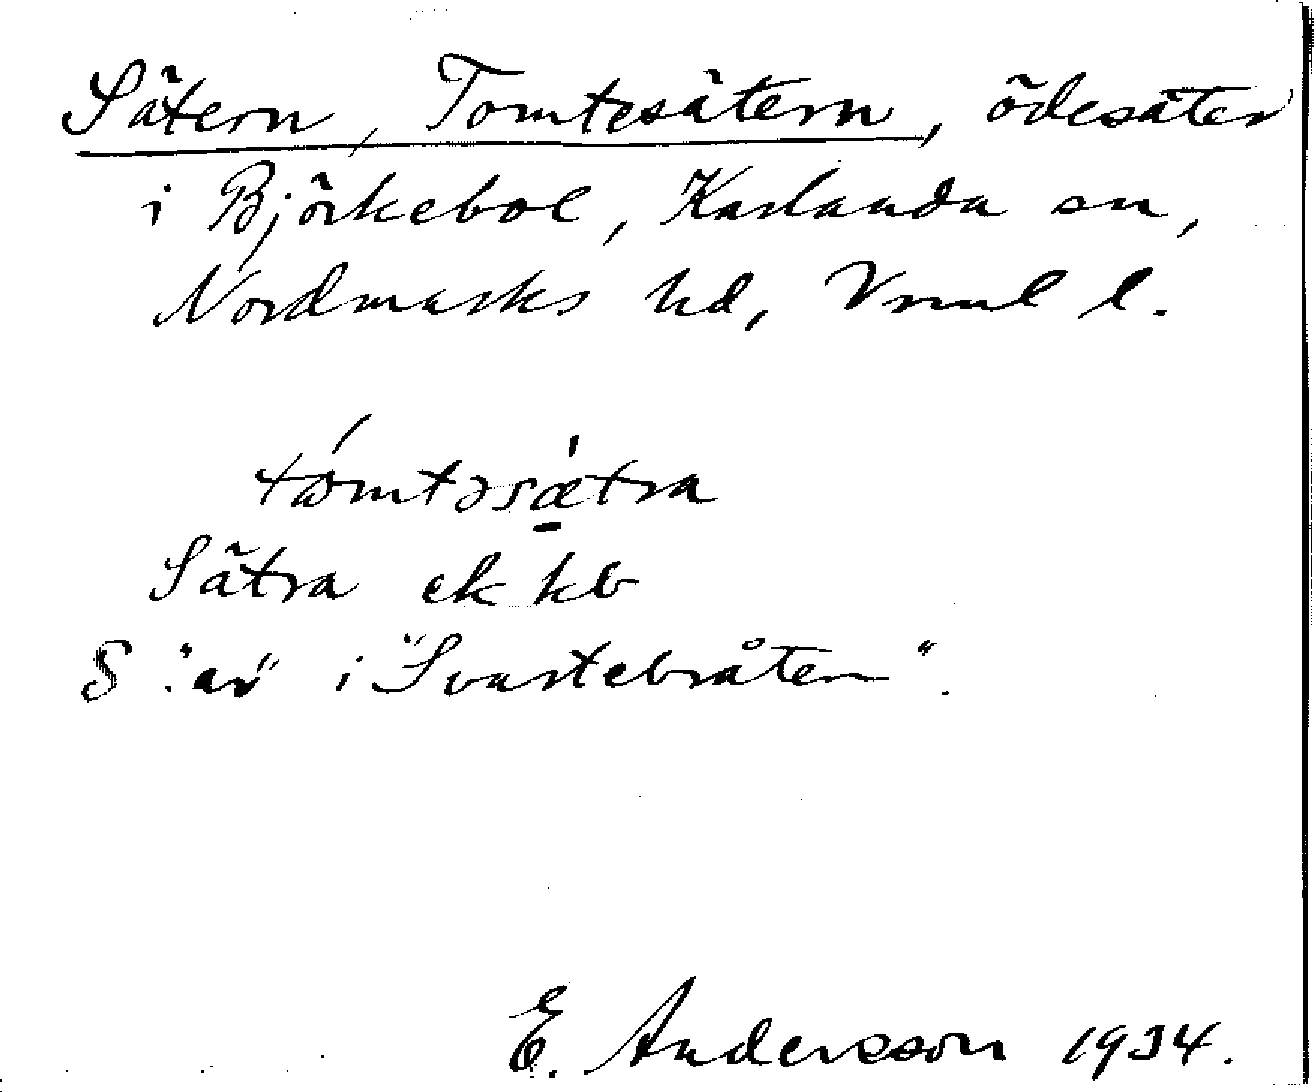 Sätern, Tomtesätern, ödesäter
i Björkebol, Karlanda sn,
Nordmarks hd, Vrml l.
tómtəsæ̠̍tra
Sätra ek kb
S "av" i "Svartebråten".
E. Andersson 1934.